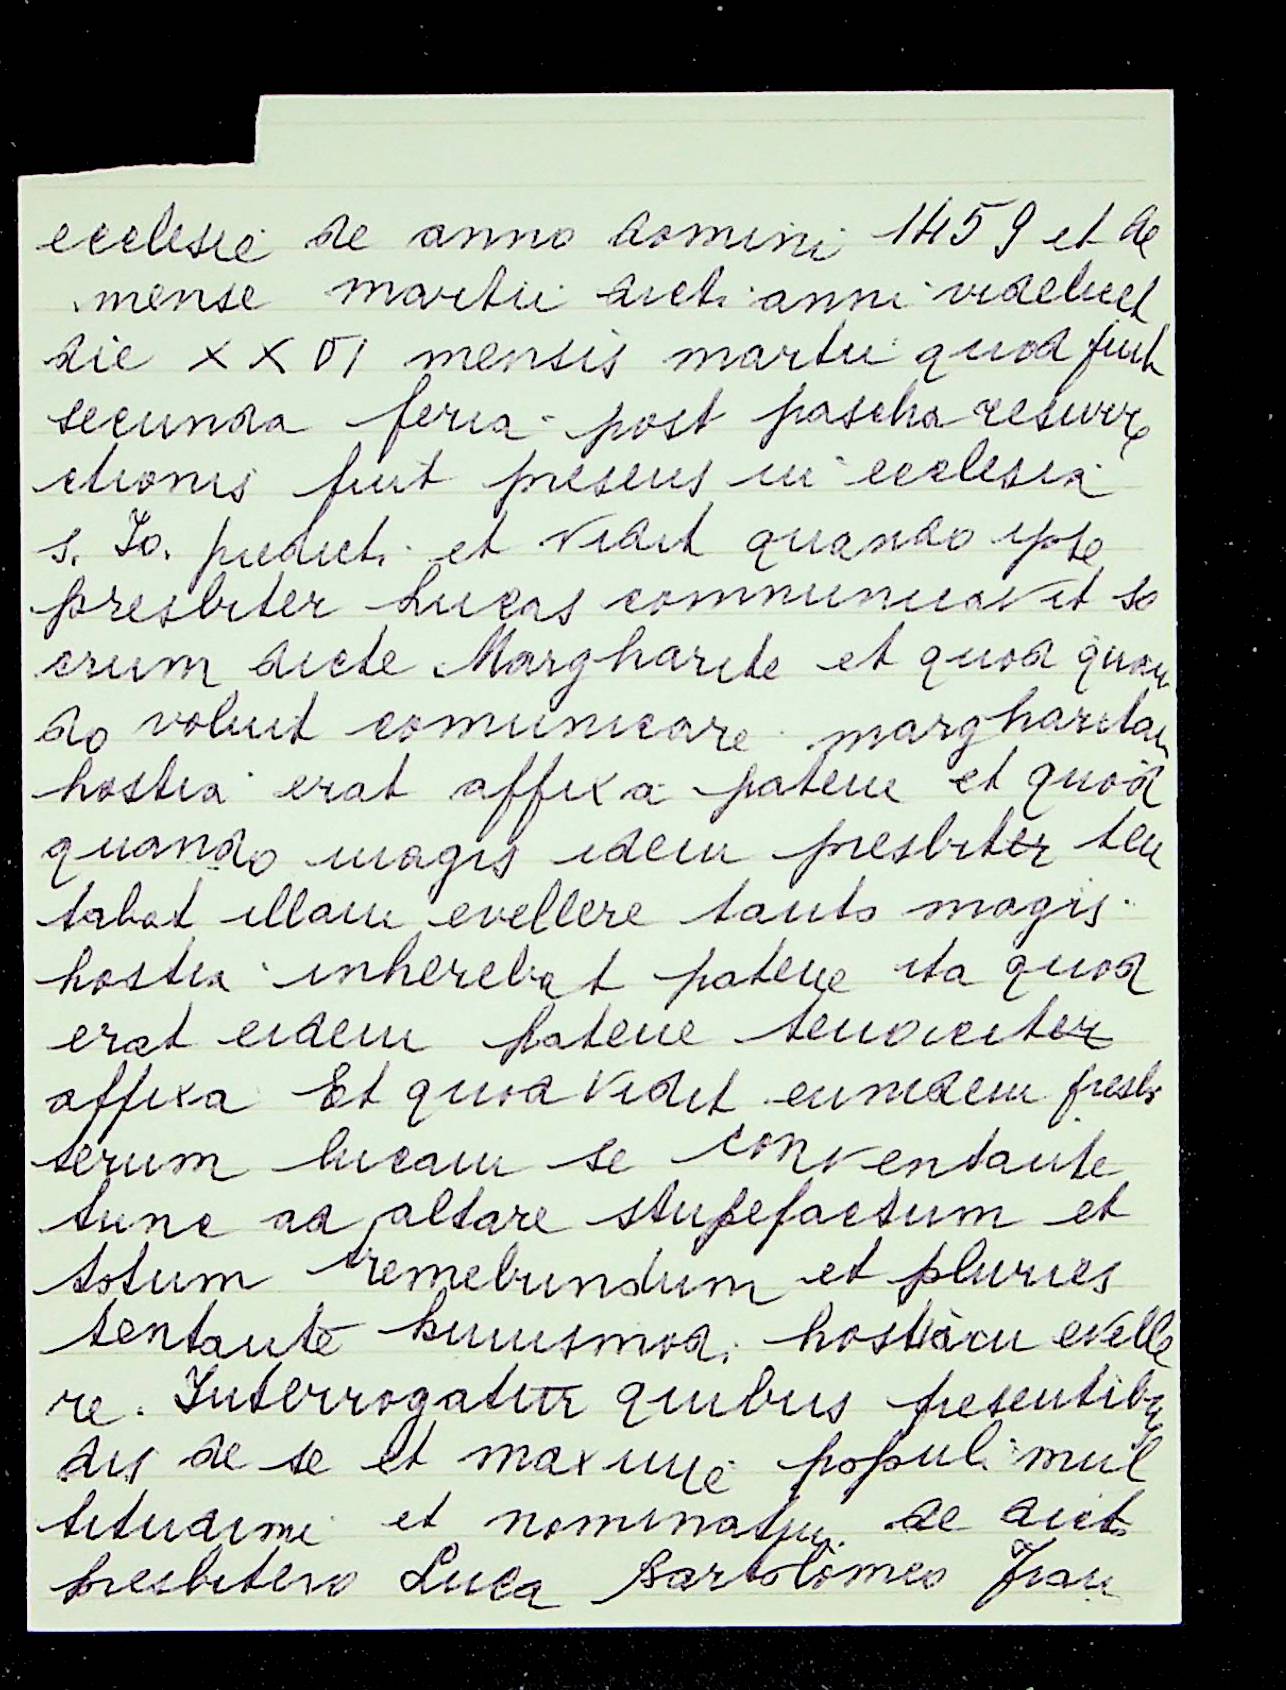 ecclesie de anno domini 1459 et de
mense martii dicti anni videlicet
die XXVI mensis martii quod fuit
secunda feria post pascha resurre
ctionis fuit presens in ecclesia
s. Jo. predicti et vidit quando ipse
presbiter Lucas communicavit so
crum dicte Margharite et quod quan
do voluit comunicare margharitam
hostia erat affixa patene et quod
quando magis idem presbiter ten
tabat illam evellere tanto magis
hostia inherebat patene ita quod
erat eidem patene tenaciter
affixa Et quod vidit eumdem presbi
terum lucam se conventante
tunc ad altare stupefactum et
totum tremebundum et pluries
tentante huiusmodi hostiam evelle
re. Interrogatur quibus presentibus
dis de se et maxime populi mul
titudine et nominatur de dicto
presbitero Luca Bartolomeo Fran